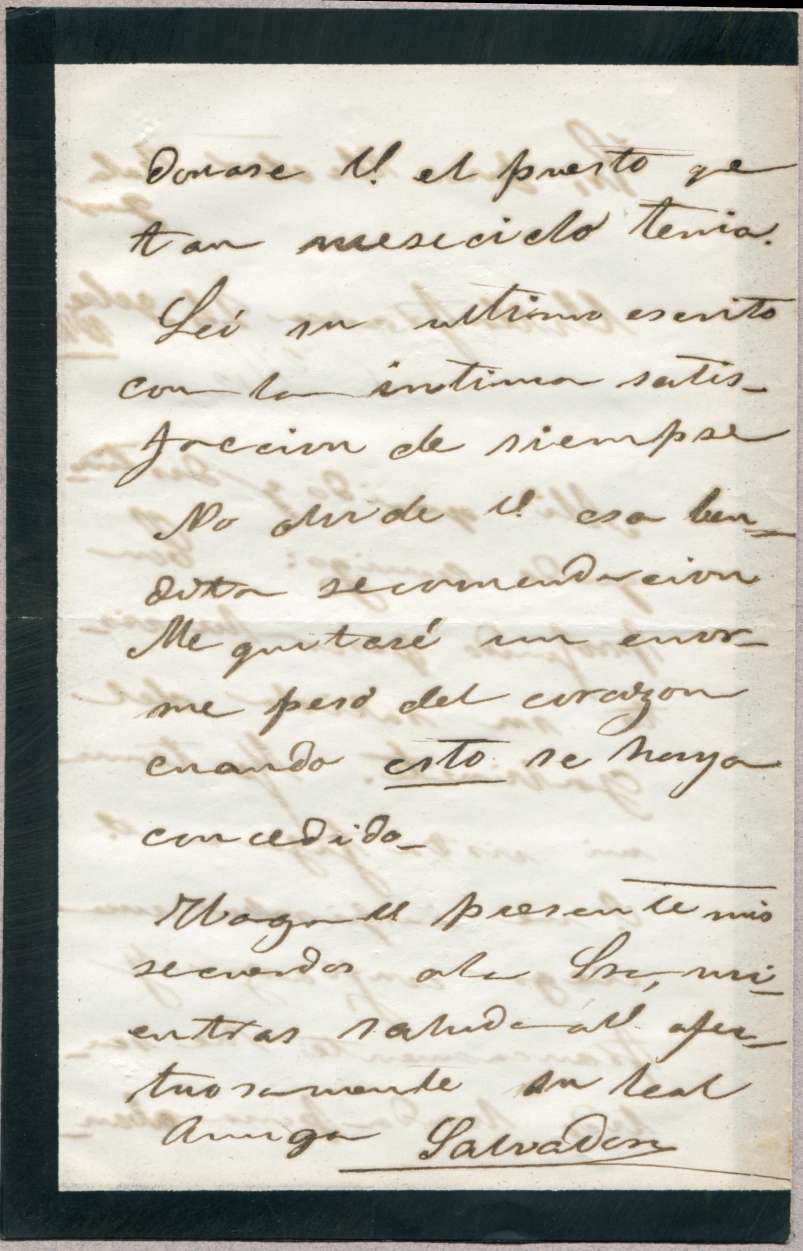 donase V. el puesto qe
tan merecido tenia.
Leí su ultimo escrito
con la intima satis-
faccion de siempre
No olvide V. esa ben-
dita recomendacion
Me quitaré un enor-
me peso del corazon
cuando esto se haya
concedido_
Haga V presente mis
recuerdos a la Sra, mi-
entras saluda a V. afec-
tuosamente su leal
Amigo Salvador